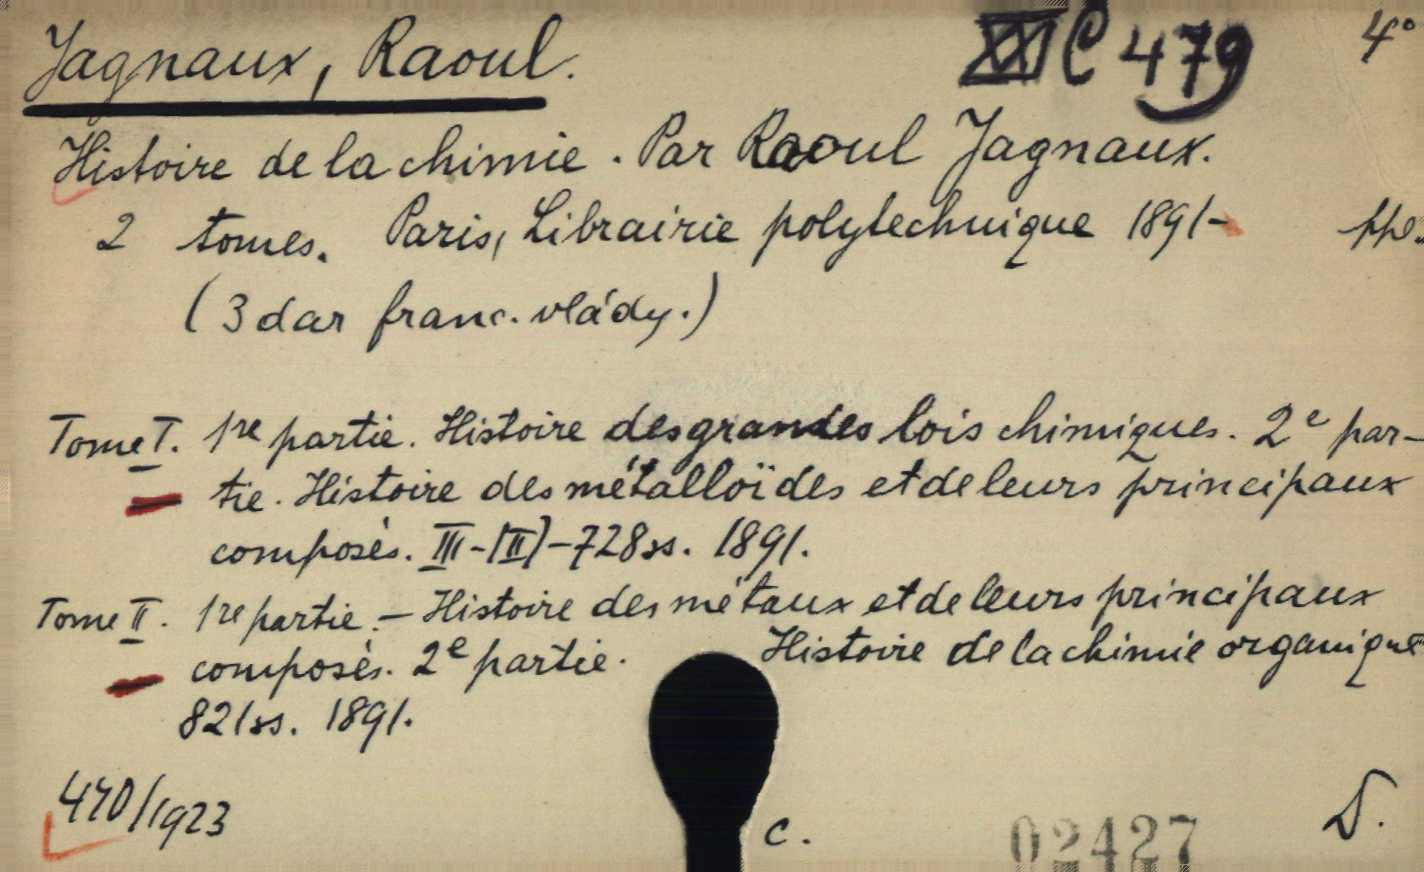 Jagnaux, Raoul. XXI C 479 4°
Histoire de la chimie. Par Raoul Jagnaux.
2 tomes. Paris, Librairie polytechnique 1891-
(3 dar franc. vlády.)
Tome I. 1re partie. Histoire des grandes lois chimiques. 2e par-
tie. Histoire des métalloïdes et de leurs principaux
composés. III-[II]-728 ss. 1891.
Tome II. 1re partie. - Histoire des métaux et de leurs principaux
composés. 2e partie. Histoire de la chimie organique
821 ss. 1891.
470/1923
c. 02427